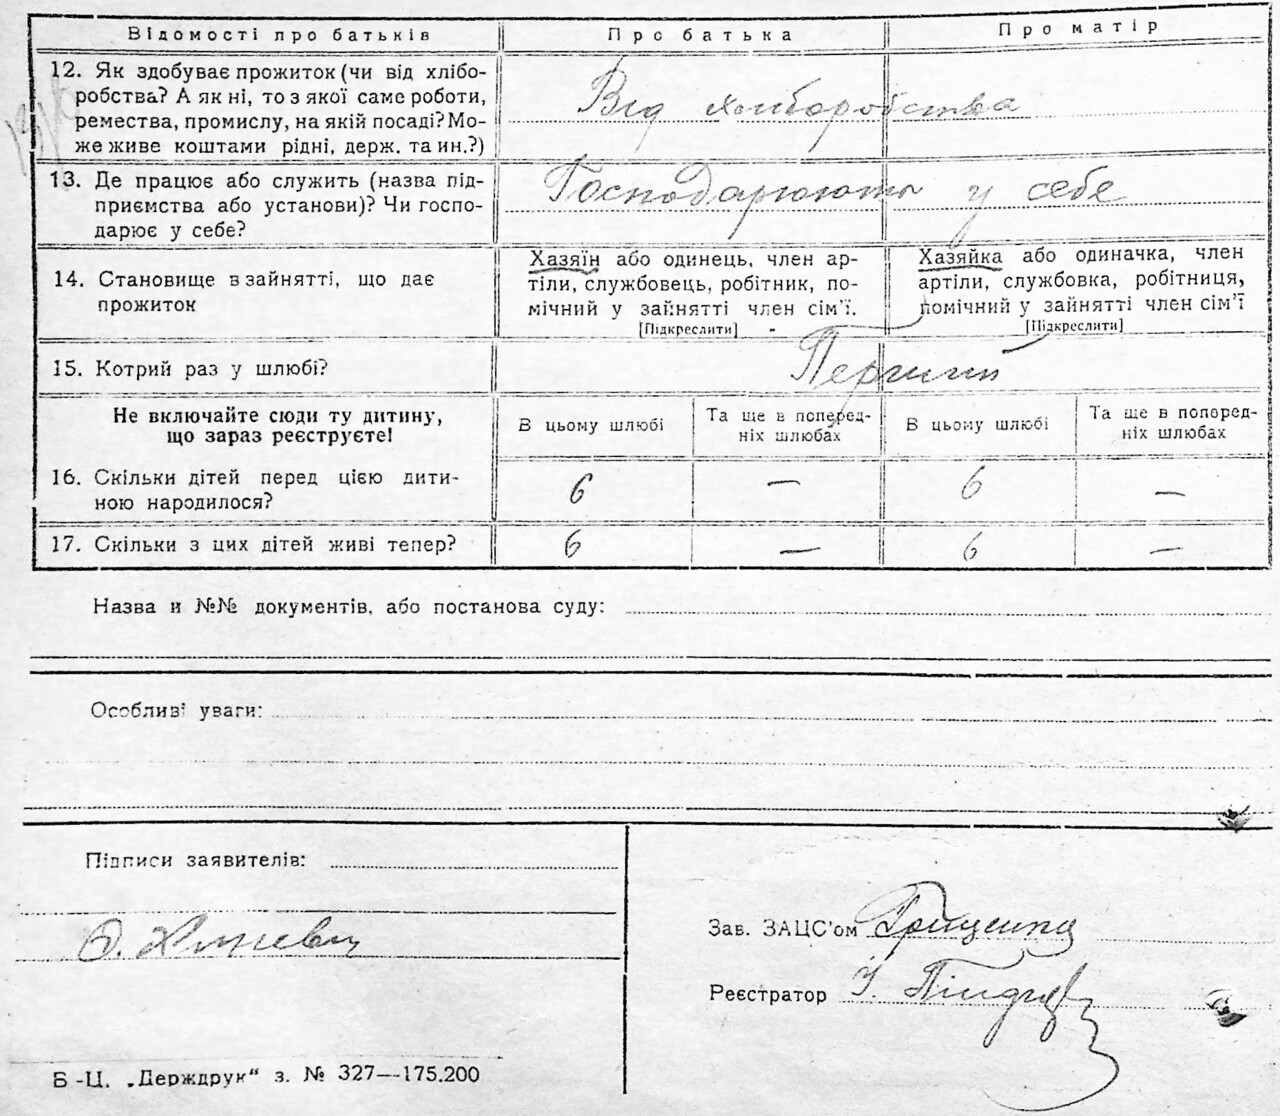 Відомості про батьків Про батька Про матір
12. Як здобуває прожиток (чи від хлібо-
робства? А як ні, то з якої саме роботи,
ремества, промислу, на якій посаді? Мо-
же живе коштами рідні, держ. та ин.?)
Від хліборобства
13. Де працює або служить (назва під-
приємства або установи)? Чи госпо-
дарює у себе?
Господарюють у себе
14. Становище в зайнятті, що дає
прожиток
Хазяїн або одинець, член ар-
тіли, службовець, робітник, по-
мічний у зайнятті член сім'ї.
[Підкреслити]
Хазяйка або одиначка, член
артіли, службовка, робітниця,
помічний у зайнятті член сім'ї
[Підкреслити]
15. Котрий раз у шлюбі?
Перший
Не включайте сюди ту дитину,
що зараз реєструєте!
В цьому шлюбі
Та ще в поперед-
ніх шлюбах
В цьому шлюбі
Та ще в поперед-
ніх шлюбах
16. Скільки дітей перед цією дити-
ною народилося?
6 — 6 —
17. Скільки з цих дітей живі тепер? 6 — 6 —
Назва и №№ документів, або постанова суду:
Особливі уваги:
Підписи заявителів:
Зав. ЗАЦС'ом Грищенко
Реєстратор
Б-Ц. „Держдрук“ з. № 327—175.200